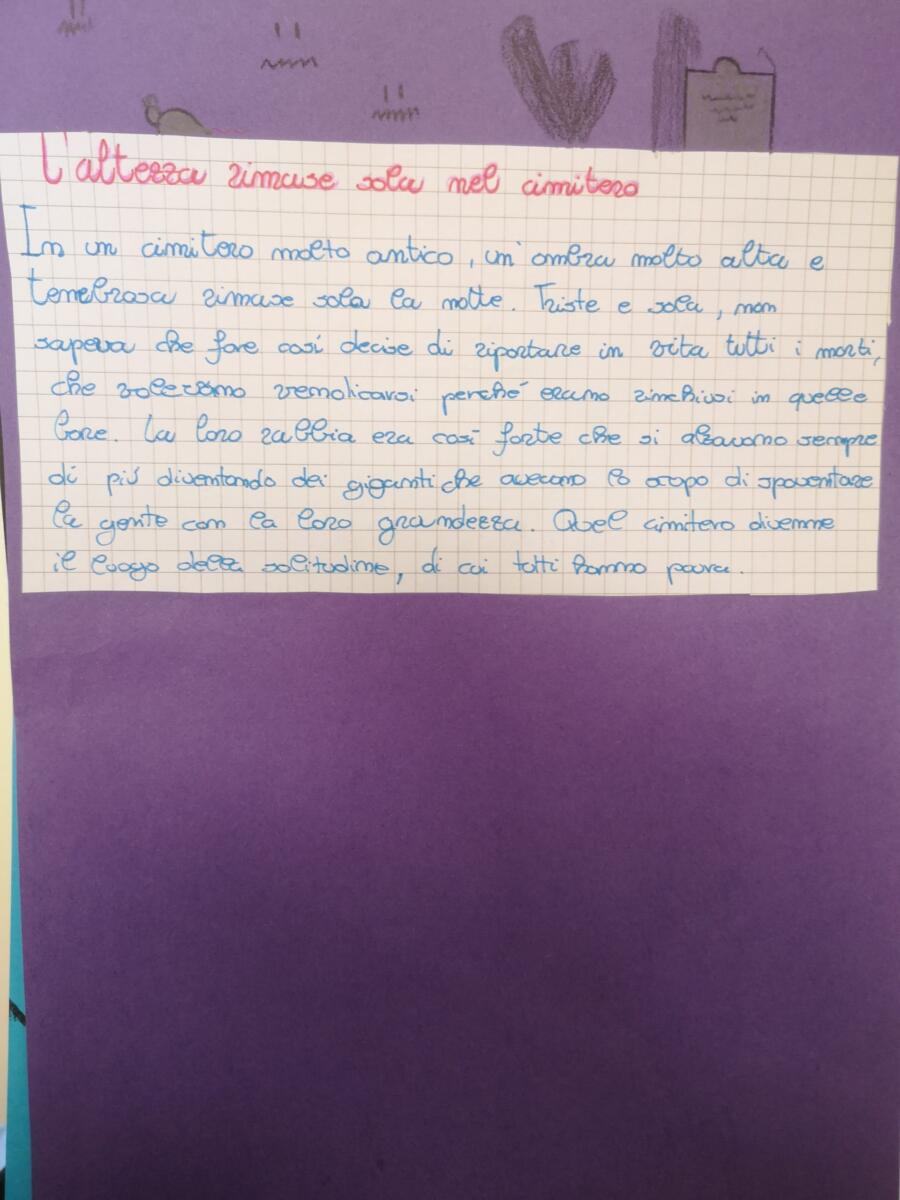 L'altezza rimase sola nel cimitero
In un cimitero molto antico, un'ombra molto alta e
tenebrosa rimase sola la notte. Triste e sola, non
sapeva che fare così decise di riportare in vita tutti i morti,
che volevano vendicarsi perché erano rinchiusi in quelle
bare. La loro rabbia era così forte che si alzavano sempre
di più diventando dei giganti che avevano lo scopo di spaventare
la gente con la loro grandezza. Quel cimitero divenne
il luogo della solitudine, di cui tutti hanno paura.